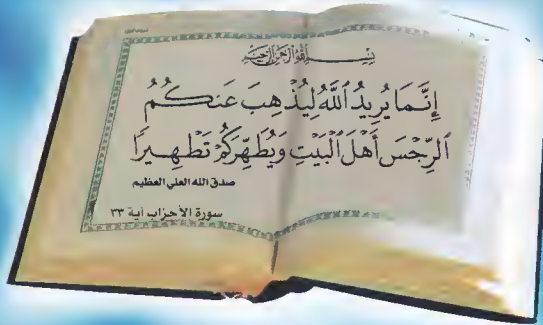 بِسْمِ اللَّهِ الرَّحْمَٰنِ الرَّحِيمِ
إِنَّمَا يُرِيدُ ٱللَّهُ لِيُذْهِبَ عَنكُمُ
ٱلرِّجْسَ أَهْلَ ٱلْبَيْتِ وَيُطَهِّرَكُمْ تَطْهِيرًا
صدق الله العلي العظيم
سورة الأحزاب آية ٣٣